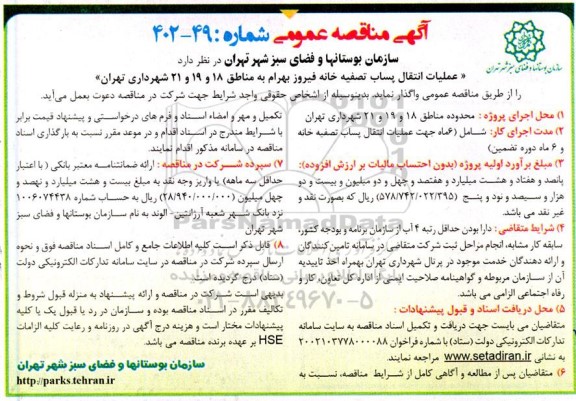 آگهی مناقصه عمومی شماره: ۴۹-۴۰۲
سازمان بوستانها و فضای سبز شهر تهران در نظر دارد
« عملیات انتقال پساب تصفیه خانه فیروز بهرام به مناطق ۱۸ و ۱۹ و ۲۱ شهرداری تهران»
را از طریق مناقصه عمومی واگذار نماید. بدینوسیله از اشخاص حقوقی واجد شرایط جهت شرکت در مناقصه دعوت بعمل می‌آید.
سازمان بوستانها و فضای سبز شهر تهران
۱) محل اجرای پروژه : محدوده مناطق ۱۸ و ۱۹ و ۲۱ شهرداری تهران
۲) مدت اجرای کار: شامل (۶ماه جهت عملیات انتقال پساب تصفیه خانه
و ۶ ماه دوره تضمین)
۳) مبلغ برآورد اولیه پروژه (بدون احتساب مالیات بر ارزش افزوده):
پانصد و هفتاد و هشت میلیارد و هفتصد و چهل و دو میلیون و بیست و دو
هزار و سیصد و نود و پنج (۵۷۸/۷۴۲/۰۲۲/۳۹۵) ریال که بصورت نقد و
غیر نقد می باشد.
۴) شرایط متقاضی : دارا بودن حداقل رتبه ۴ آب از سازمان برنامه و بودجه کشور،
سابقه کار مشابه، انجام مراحل ثبت شرکت متقاضی در سامانه تامین کنندگان
و ارائه دهندگان خدمت موجود در پرتال شهرداری تهران بهمراه اخذ تاییدیه
آن از سازمان مربوطه و گواهینامه صلاحیت ایمنی از اداره کل تعاون کار و
رفاه اجتماعی الزامی می باشد.
۵) محل دریافت اسناد و قبول پیشنهادات :
متقاضیان می بایست جهت دریافت و تکمیل اسناد مناقصه به سایت سامانه
تدارکات الکترونیکی دولت (ستاد) با شماره فراخوان ۲۰۰۲۱۰۳۷۷۸۰۰۰۰۸۸
به نشانی www.setadiran.ir مراجعه نمایند.
۶) متقاضیان پس از مطالعه و آگاهی کامل از شرایط مناقصه، نسبت به
تکمیل و مهر و امضاء اسناد و فرم های درخواستی و پیشنهاد قیمت برابر
با شرایط مندرج در اسناد اقدام و در موعد مقرر نسبت به بارگذاری اسناد
مناقصه در سامانه مذکور اقدام نمایند.
۷) سپرده شرکت در مناقصه : ارائه ضمانتنامه معتبر بانکی ( با اعتبار
حداقل سه ماهه) یا واریز وجه نقد به مبلغ بیست و هشت میلیارد و نهصد و
چهل میلیون (۲۸/۹۴۰/۰۰۰/۰۰۰) ریال به حساب شماره ۱۰۰۶۰۷۴۴۳۸
نزد بانک شهر شعبه آرژانتین- الوند به نام سازمان بوستانها و فضای سبز
شهر تهران
۸) قابل ذکر است کلیه اطلاعات جامع و کامل اسناد مناقصه فوق و نحوه
ارسال سپرده شرکت در مناقصه در سایت سامانه تدارکات الکترونیکی دولت
(ستاد) درج گردیده است.
بدیهی است شرکت در مناقصه و ارائه پیشنهاد به منزله قبول شروط و
تکالیف مقرر در اسناد مناقصه بوده و سازمان در رد یا قبول یک یا کلیه
پیشنهادات مختار است و هزینه درج آگهی در روزنامه و رعایت کلیه الزامات
HSE بر عهده برنده مناقصه می باشد.
سازمان بوستانها و فضای سبز شهر تهران
http://parks.tehran.ir
ParsNamadData
۰۲۱-۸۸۳۴۹۶۷۰-۵